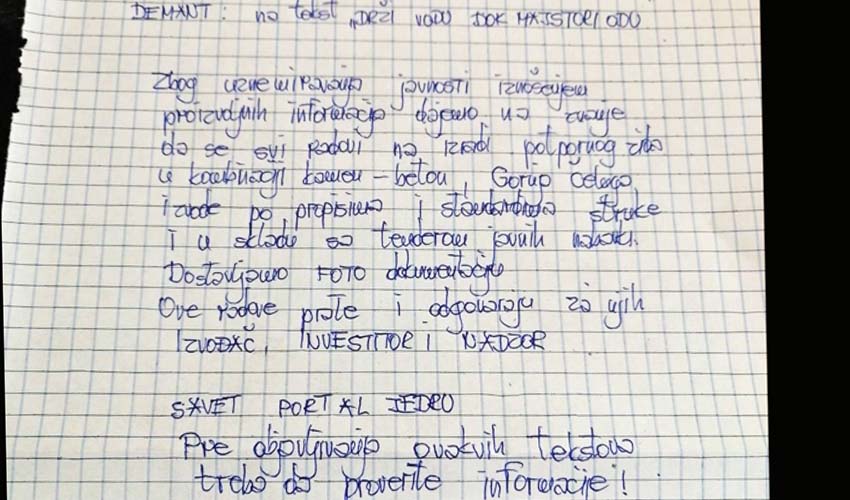 DEMANT: na tekst „DRŽI VODU DOK MAJSTORI ODU
Zbog uznemiravanja javnosti iznošenjem
proizvoljnih informacija dajemo na znanje
da se svi radovi na izradi potpornog zida
u kombinaciji kamen - beton, Gornja
izvode po propisima i standardima struke
i u skladu sa tenderom javnih nabavki.
Dostavljamo FOTO dokumentaciju
Ove radove prate i odgovaraju za njih
IZVOĐAČ, INVESTITOR i NADZOR
SAVET PORTAL JEDRO
Pre objavljivanja ovakvih tekstova
treba da proverite informacije!